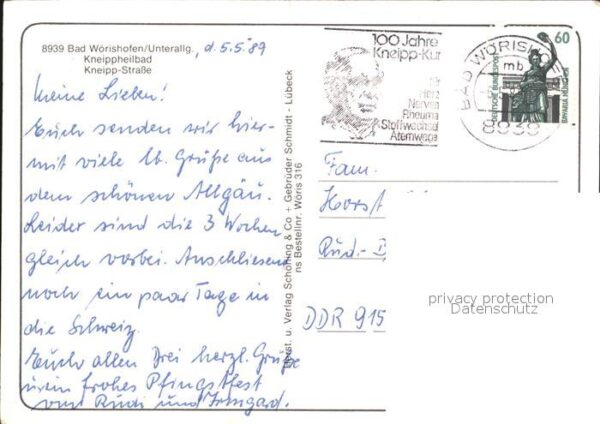 8939 Bad Wörishofen/Unterallg.
Kneippheilbad
Kneipp-Straße
, d. 5.5.89
Meine Lieben!
Euch senden wir hier-
mit viele lb. Grüße aus
dem schönen Allgäu.
Leider sind die 3 Wochen
gleich vorbei. Anschliesend
noch ein paar Tage in
die Schweiz.
Euch allen Drei herzl. Grüße
u. ein frohes Pfingstfest
von Rudi und Irmgard.
Verlag Schöning & Co + Gebrüder Schmidt - Lübeck
Bestellnr. Wöris 316
100 Jahre
Kneipp-Kur
für
Herz
Nerven
Rheuma
Stoffwechsel
Atemwege
BAD WÖRISH
mb
8939
60
DEUTSCHE BUNDESPOST
BAVARIA MÜNCHEN
Fam.
Horst
Rud.-
DDR 915
privacy protection
Datenschutz